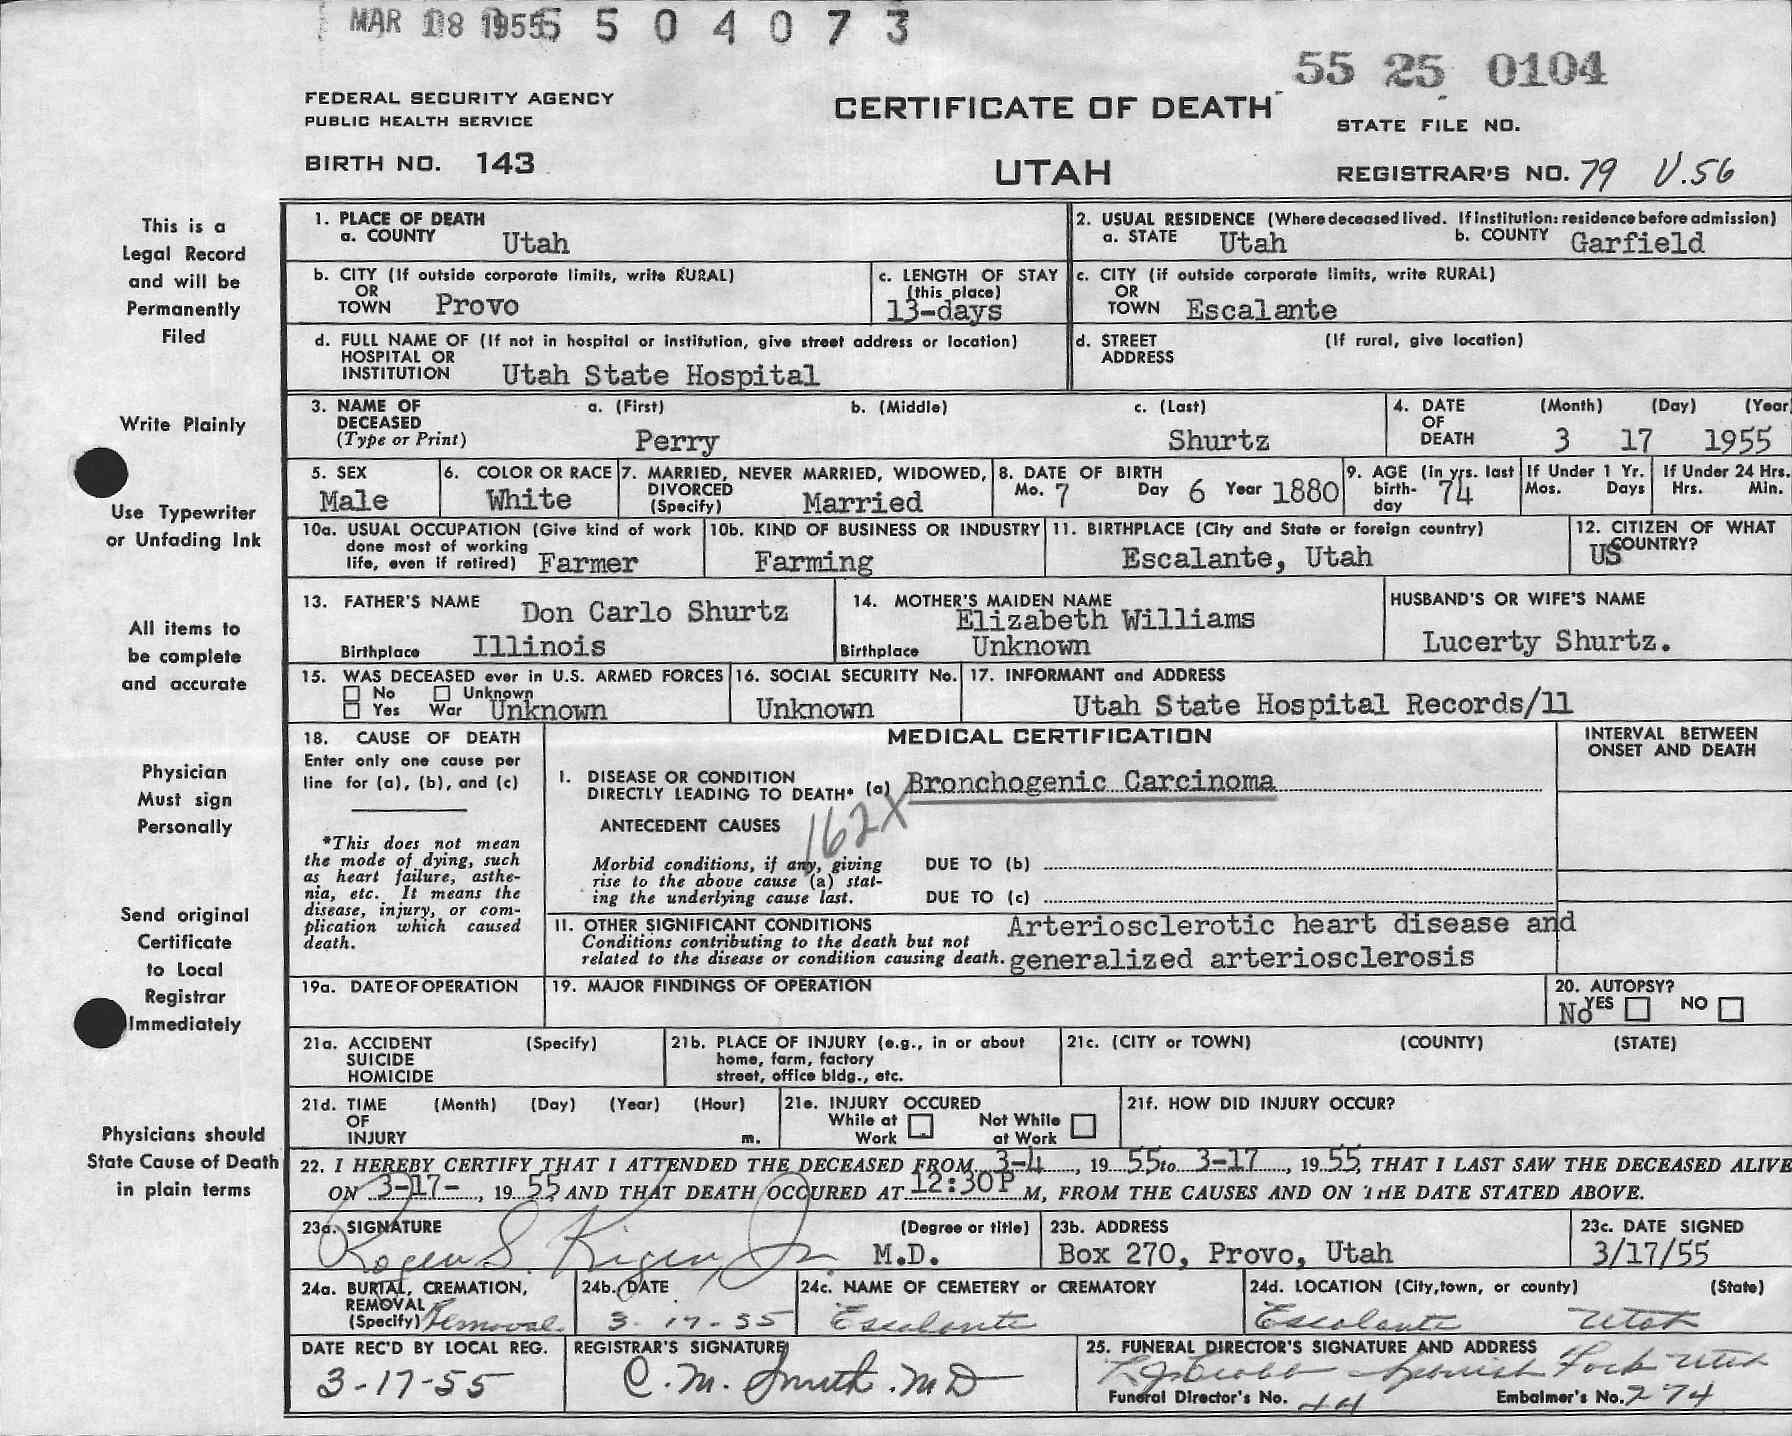 MAR 18 1955 5 5 0 4 0 7 3
55 25 0104
FEDERAL SECURITY AGENCY
PUBLIC HEALTH SERVICE
CERTIFICATE OF DEATH
STATE FILE NO.
BIRTH NO. 143
UTAH
REGISTRAR'S NO. 79 V.56
This is a
Legal Record
and will be
Permanently
Filed
Write Plainly
Use Typewriter
or Unfading Ink
All items to
be complete
and accurate
Physician
Must sign
Personally
Send original
Certificate
to Local
Registrar
Immediately
Physicians should
State Cause of Death
in plain terms
1. PLACE OF DEATH
a. COUNTY Utah
2. USUAL RESIDENCE (Where deceased lived. If institution: residence before admission)
a. STATE Utah b. COUNTY Garfield
b. CITY (If outside corporate limits, write RURAL)
OR
TOWN Provo
c. LENGTH OF STAY
(this place)
13-days
c. CITY (if outside corporate limits, write RURAL)
OR
TOWN Escalante
d. FULL NAME OF (If not in hospital or institution, give street address or location)
HOSPITAL OR
INSTITUTION Utah State Hospital
d. STREET (If rural, give location)
ADDRESS
3. NAME OF a. (First) b. (Middle) c. (Last)
DECEASED
(Type or Print) Perry Shurtz
4. DATE (Month) (Day) (Year
OF
DEATH 3 17 1955
5. SEX
Male
6. COLOR OR RACE
White
7. MARRIED, NEVER MARRIED, WIDOWED,
DIVORCED
(Specify) Married
8. DATE OF BIRTH
Mo. 7 Day 6 Year 1880
9. AGE (in yrs. last
birth- 74
day
If Under 1 Yr.
Mos. Days
If Under 24 Hrs.
Hrs. Min.
10a. USUAL OCCUPATION (Give kind of work
done most of working
life, even if retired) Farmer
10b. KIND OF BUSINESS OR INDUSTRY
Farming
11. BIRTHPLACE (City and State or foreign country)
Escalante, Utah
12. CITIZEN OF WHAT
COUNTRY?
US
13. FATHER'S NAME Don Carlo Shurtz
Birthplace Illinois
14. MOTHER'S MAIDEN NAME
Elizabeth Williams
Birthplace Unknown
HUSBAND'S OR WIFE'S NAME
Lucerty Shurtz.
15. WAS DECEASED ever in U.S. ARMED FORCES
No Unknown
Yes War Unknown
16. SOCIAL SECURITY No.
Unknown
17. INFORMANT and ADDRESS
Utah State Hospital Records/ll
18. CAUSE OF DEATH
Enter only one cause per
line for (a), (b), and (c)
*This does not mean
the mode of dying, such
as heart failure, asthe-
nia, etc. It means the
disease, injury, or com-
plication which caused
death.
MEDICAL CERTIFICATION
INTERVAL BETWEEN
ONSET AND DEATH
I. DISEASE OR CONDITION
DIRECTLY LEADING TO DEATH* (a) Bronchogenic Carcinoma
162X
ANTECEDENT CAUSES
Morbid conditions, if any, giving
rise to the above cause (a) stat-
ing the underlying cause last.
DUE TO (b)
DUE TO (c)
II. OTHER SIGNIFICANT CONDITIONS
Conditions contributing to the death but not
related to the disease or condition causing death.
Arteriosclerotic heart disease and
generalized arteriosclerosis
19a. DATE OF OPERATION
19. MAJOR FINDINGS OF OPERATION
20. AUTOPSY?
No YES NO
21a. ACCIDENT (Specify)
SUICIDE
HOMICIDE
21b. PLACE OF INJURY (e.g., in or about
home, farm, factory
street, office bldg., etc.
21c. (CITY or TOWN) (COUNTY) (STATE)
21d. TIME (Month) (Day) (Year) (Hour)
OF
INJURY m.
21e. INJURY OCCURED
While at Not While
Work at Work
21f. HOW DID INJURY OCCUR?
22. I HEREBY CERTIFY THAT I ATTENDED THE DECEASED FROM 3-4, 19 55 to 3-17, 19 55, THAT I LAST SAW THE DECEASED ALIVE
ON 3-17-, 19 55 AND THAT DEATH OCCURED AT 12:30P M, FROM THE CAUSES AND ON THE DATE STATED ABOVE.
23a. SIGNATURE (Degree or title)
Roger S. Jr. M.D.
23b. ADDRESS
Box 270, Provo, Utah
23c. DATE SIGNED
3/17/55
24a. BURIAL, CREMATION,
REMOVAL
(Specify) Removal
24b. DATE
3-17-55
24c. NAME OF CEMETERY or CREMATORY
Escalante
24d. LOCATION (City, town, or county) (State)
Escalante Utah
DATE REC'D BY LOCAL REG.
3-17-55
REGISTRAR'S SIGNATURE
C. M. Smith. MD
25. FUNERAL DIRECTOR'S SIGNATURE AND ADDRESS
Spanish Fork Utah
Funeral Director's No. Embalmer's No. 274